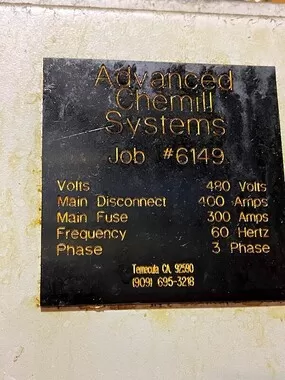 Advanced
Chemill
Systems
Job #6149
Volts 480 Volts
Main Disconnect 400 Amps
Main Fuse 300 Amps
Frequency 60 Hertz
Phase 3 Phase
Temecula CA. 92590
(909) 695-3218